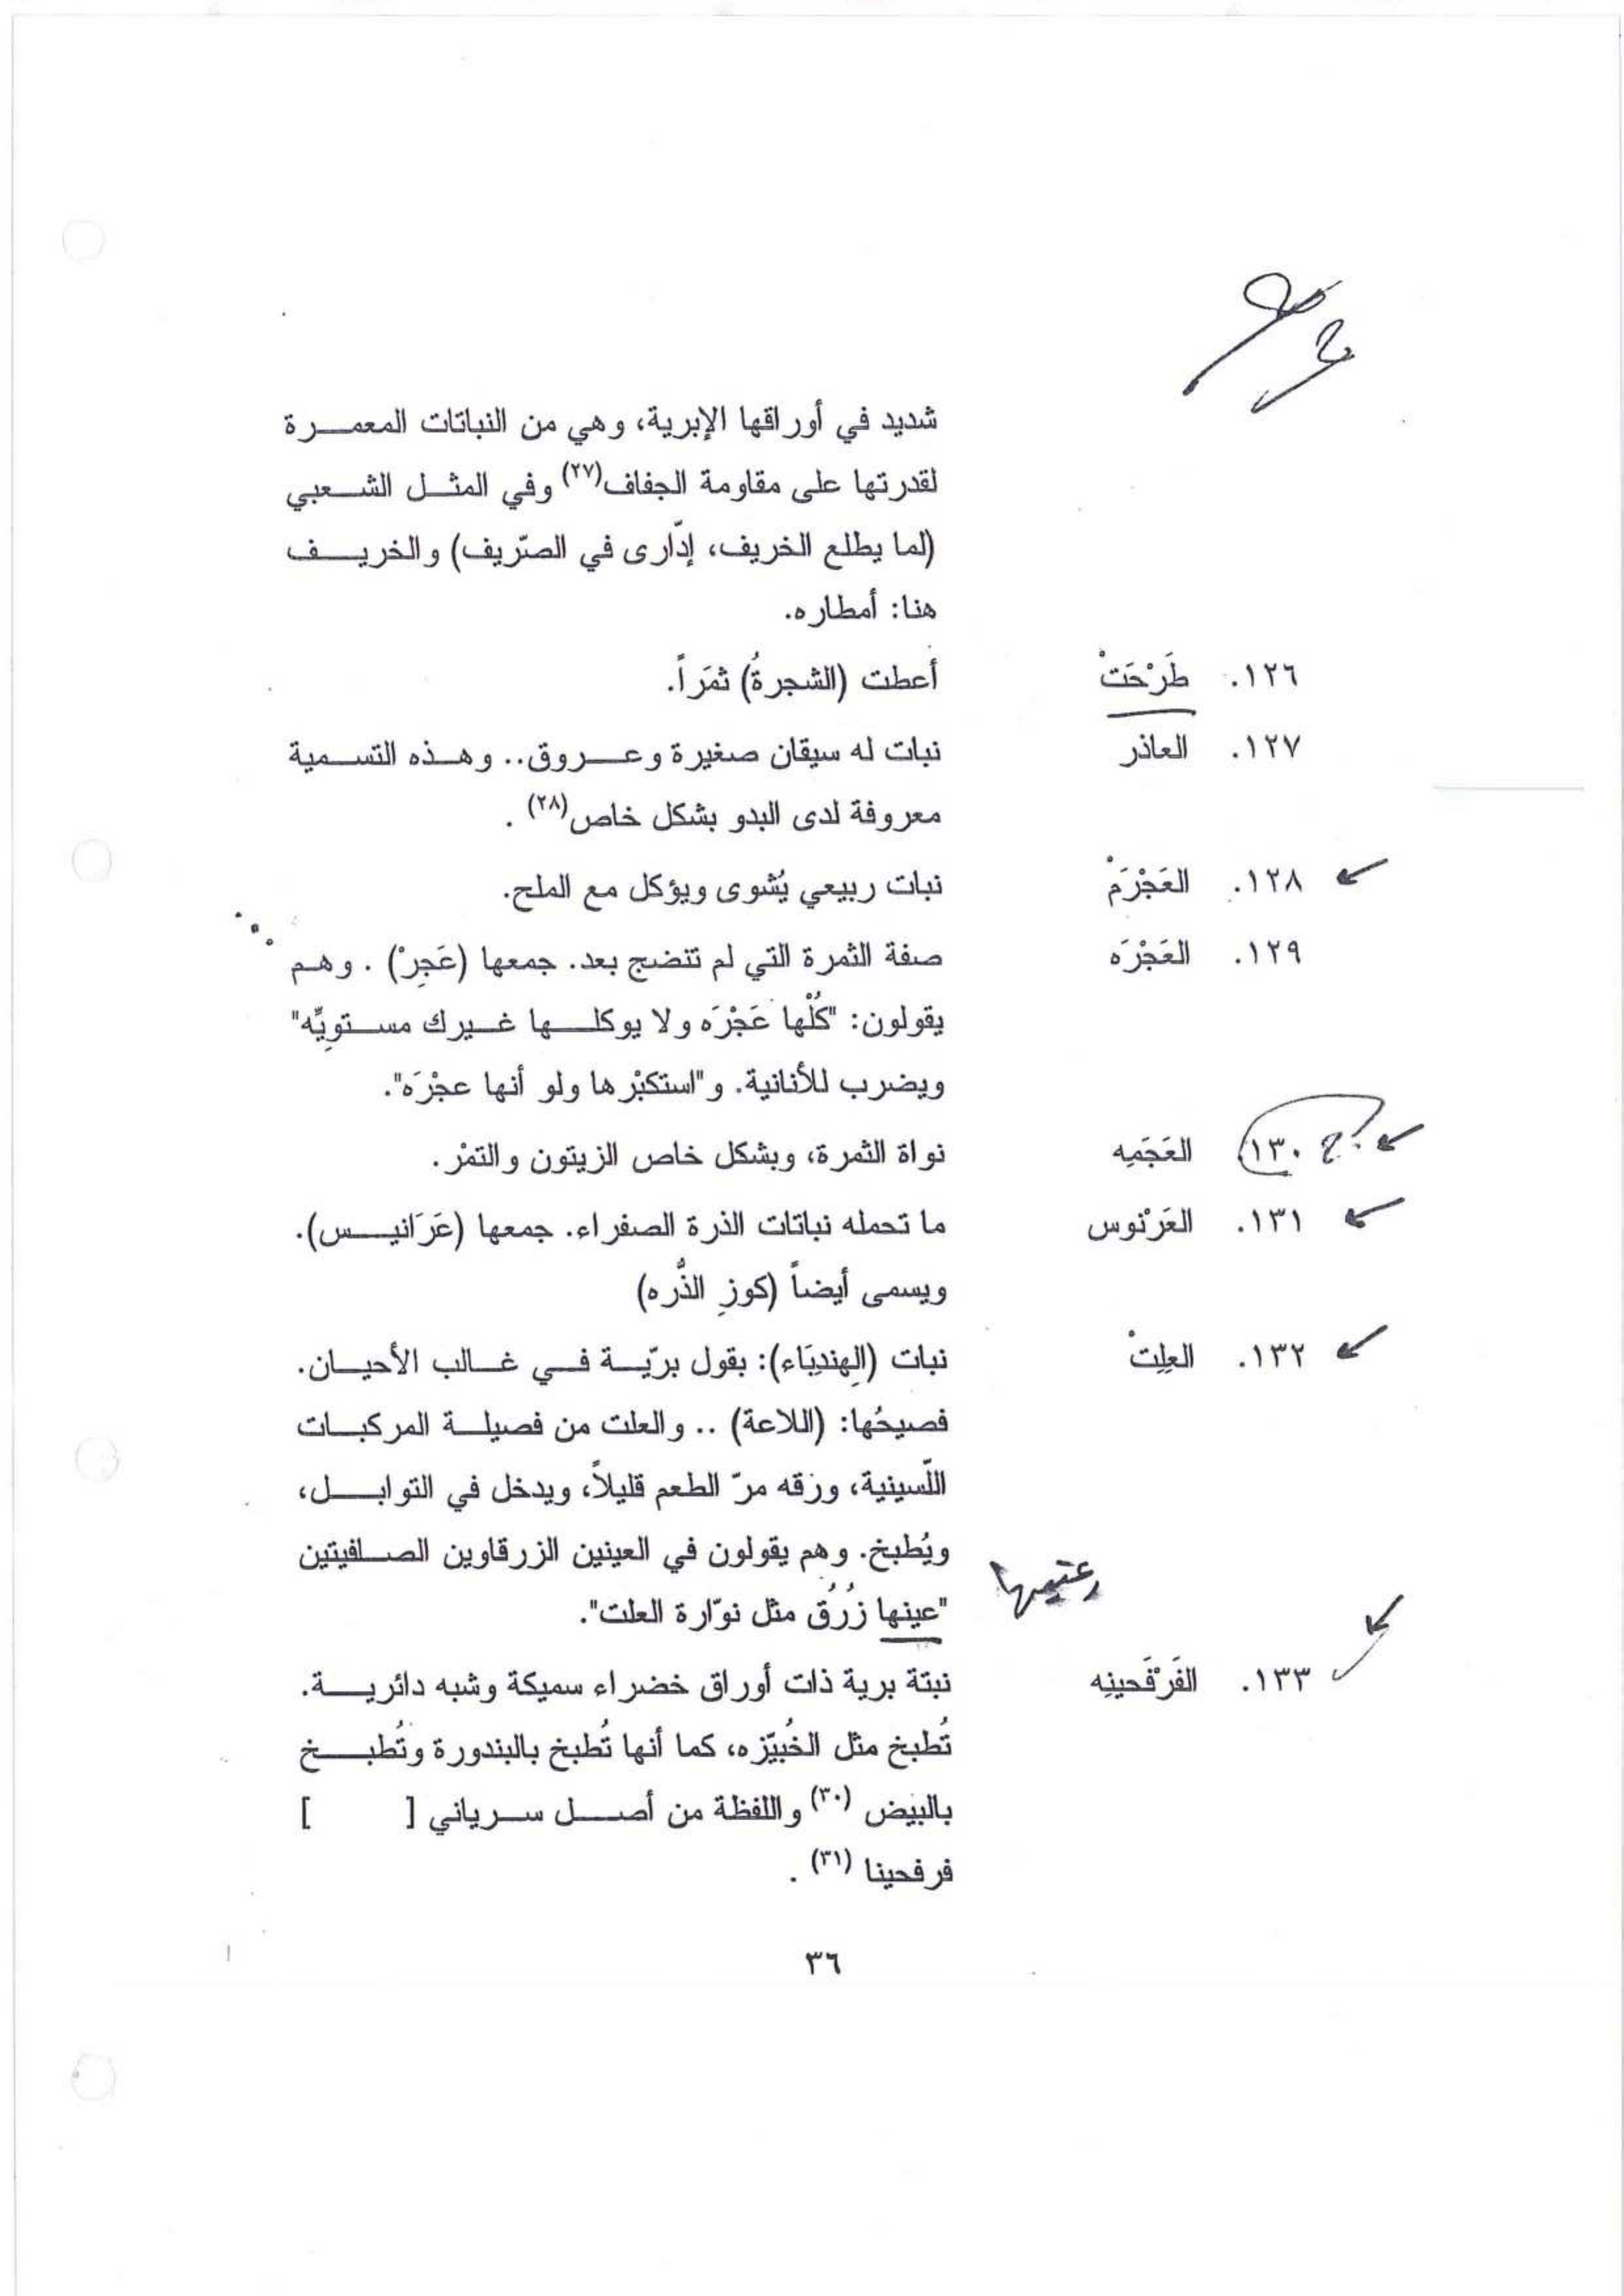 شديد في أوراقها الإبرية، وهي من النباتات المعمرة
لقدرتها على مقاومة الجفاف(٢٧) وفي المثل الشعبي
(لما يطلع الخريف، إدّارى في الصّريف) والخريف
هنا: أمطاره.
١٢٦. طَرْحَتْ أعطت (الشجرةُ) ثمَراً.
١٢٧. العاذر نبات له سيقان صغيرة وعروق.. وهذه التسمية
معروفة لدى البدو بشكل خاص(٢٨) .
١٢٨. العَجْرَمْ نبات ربيعي يُشوى ويؤكل مع الملح.
١٢٩. العَجْرَه صفة الثمرة التي لم تنضج بعد. جمعها (عَجِرْ) . وهم
يقولون: "كُلْها عَجْرَه ولا يوكلها غيرك مستويِّه"
ويضرب للأنانية. و"استكبْرها ولو أنها عجْرَه".
١٣٠. العَجَمِه نواة الثمرة، وبشكل خاص الزيتون والتمْر.
١٣١. العَرْنوس ما تحمله نباتات الذرة الصفراء. جمعها (عَرَانيس).
ويسمى أيضاً (كوزِ الذُّره)
١٣٢. العِلِتْ نبات (الهِندِبَاء): بقول بريّة في غالب الأحيان.
فصيحُها: (اللاعة) .. والعلت من فصيلة المركبات
اللّسينية، ورَقه مرّ الطعم قليلاً، ويدخل في التوابل،
ويُطبخ. وهم يقولون في العينين الزرقاوين الصافيتين
"عينها زُرُق مثل نوّارة العلت".
١٣٣. الفَرْفَحينِه نبتة برية ذات أوراق خضراء سميكة وشبه دائرية.
تُطبخ مثل الخُبيّزه، كما أنها تُطبخ بالبندورة وتُطبخ
بالبيض (٣٠) واللفظة من أصل سرياني [ ]
فرفحينا (٣١) .
٣٦